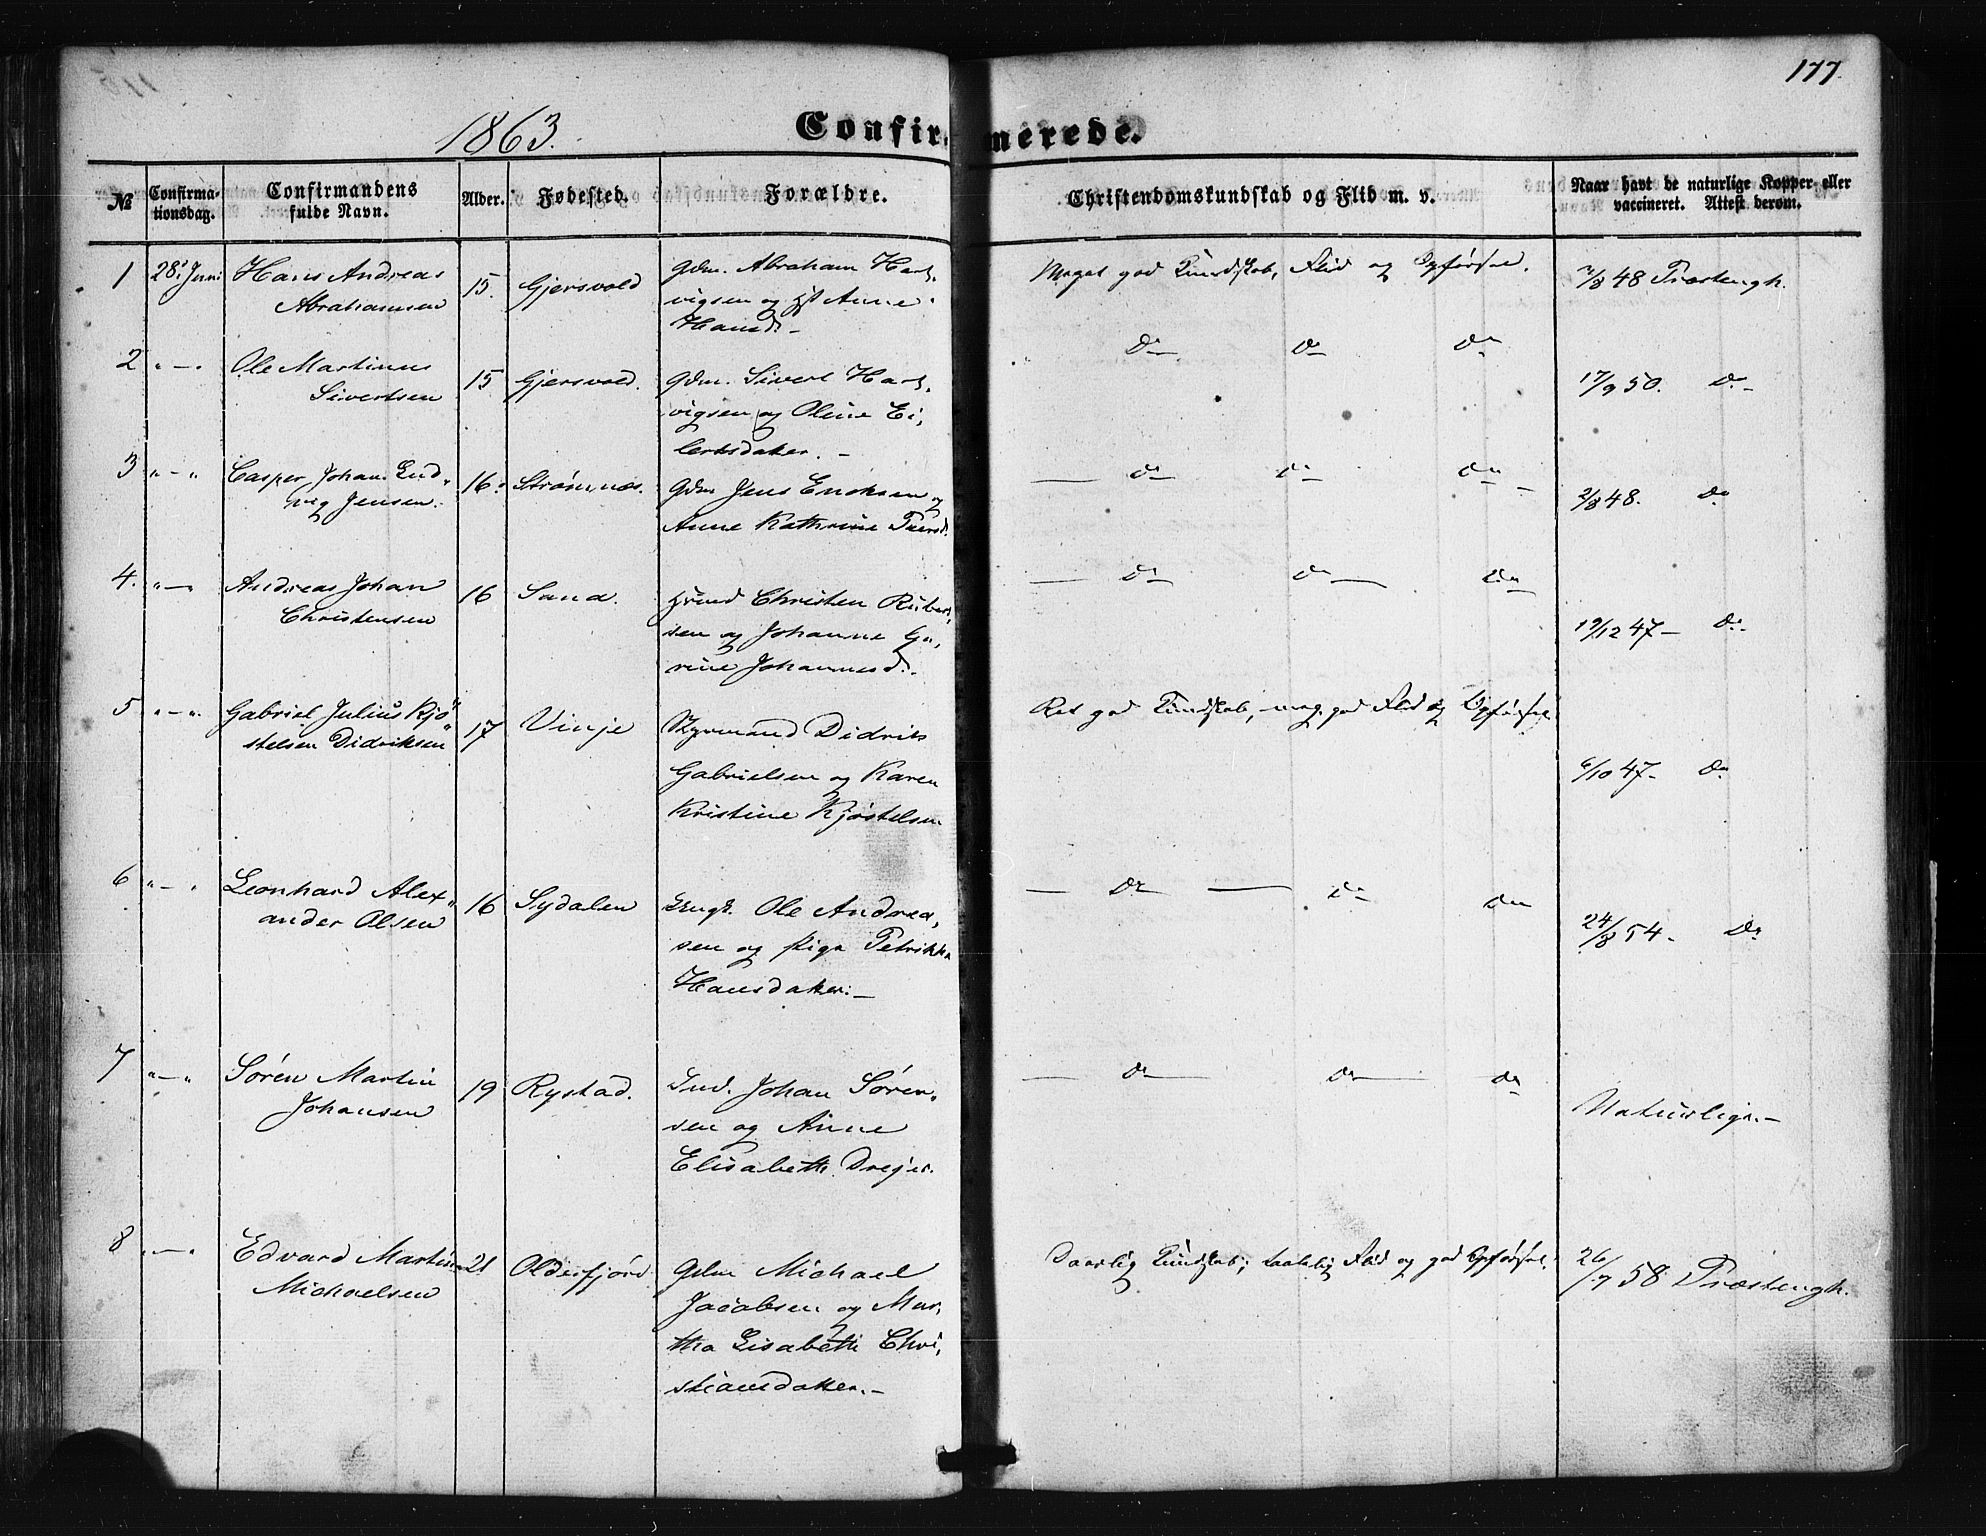 177.
1863.
Confirmerede.
№
Confirma-
tionsdag.
Confirmandens
fulde Navn.
Alder.
Fødested.
Forældre.
Christendomskundskab og Flid m. v.
Naar havt de naturlige Kopper eller
vaccineret. Attest derom.
1 28' Juni Hans Andreas
Abrahamsen
15. Gjersvold
Gdm. Abraham Hart
vigsen og Anne
Hansd. -
Meget god Kundskab, Flid og Opførsel.
48 Træstengh.
2 " - " Ole Martinus
Sivertsen
15 Gjersvold.
Gdm. Sivert Hart,
vigsen og Oline Ei,
lertsdatter. -
Do Do Do
17/9 50. Do -
3 " - " Casper Johan Lud"
vig Jensen.
16. Strømnæs.
Gdm Jens Eriksen og
Anne Kathrine Peersd.
Do Do Do
2/8 48. Do
4. " - " Andreas Johan
Christensen
16 Sand.
Christen
sen og Johanne Ga,
rine Johannesd. -
Do Do Do
19/12 47 - Do.
5 " - " Gabriel Julius Kjø"
stelsen Didriksen
17 Vinje
Styrmand Didrik
Gabrielsen og Karen
Kristine Kjøstelsen
Ret god Kundskab, meg. god Flid og Opførsel.
6/10 47 - Do
6 " - " Leonhard Alex"
ander Olsen
16 Sydalen
Ungk. Ole Andrea,
sen og Pige Petrikka
Hansdatter. -
Do Do Do
24/8 54 - Do
7 " - " Søren Martin
Johansen
19 Rystad.
Ind. Johan Søren,
sen og Anne
Elisabeth Dreyer.
Do Do Do
Naturlige. -
8 " - " Edvard Martin
Michaelsen
21 Olderfjord
Gdm Michael
Jacobsen og Mar,
tha Lisabeth Chri,
stiansdatter. -
Daarlig Kundskab, taalelig Flid og god Opførsel.
26/7 58 Træstengh.